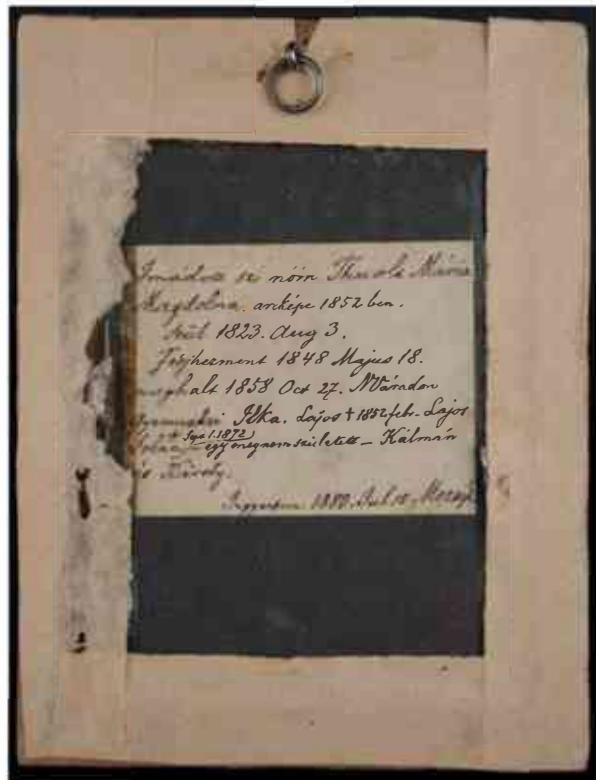 Imádott nőm Mária
Magdolna arcképe 1852 ben.
szül 1823. Aug 3.
Férjhezment 1848 Majus 18.
meghalt 1858 Oct 27. NVáradon
Ilka. Lajos † 1852 feb. Lajos
1.1872)
egy még nem született – Kálmán
és Károly.
1880. Jul 15.